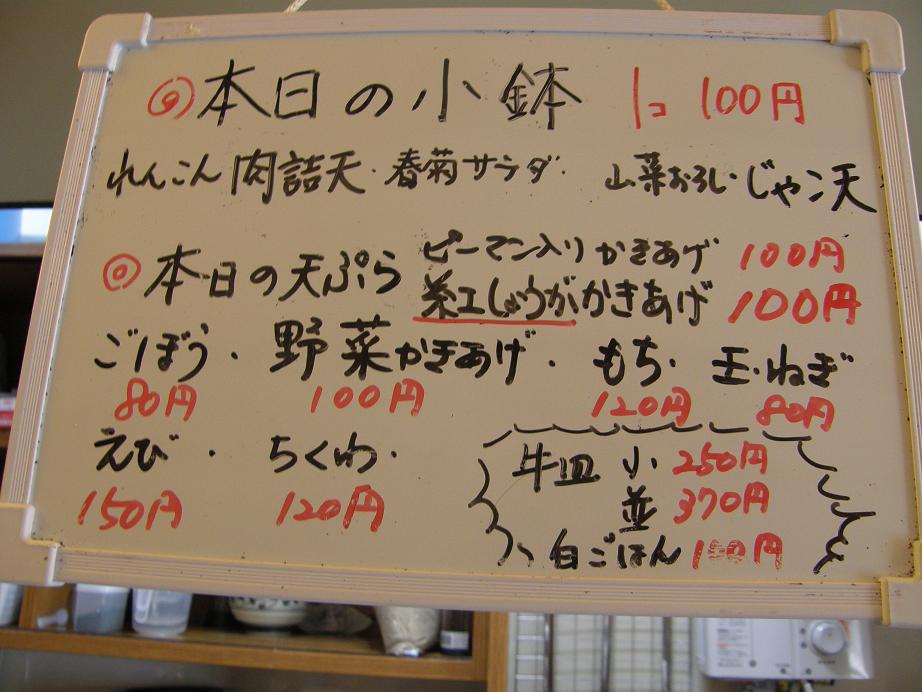 ◎本日の小鉢 1コ 100円
れんこん肉詰天・春菊サラダ・山菜おろし・じゃこ天
◎本日の天ぷら ピーマン入りかきあげ 100円
紅しょうがかきあげ 100円
ごぼう・野菜かきあげ・もち・玉ねぎ
80円 100円 120円 80円
えび・ちくわ・
150円 120円
牛皿 小 250円
並 370円
白ごはん 100円